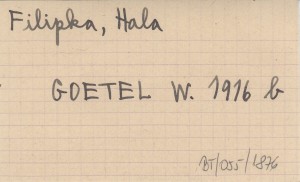 Filipka, Hala
GOETEL W. 1916 b
BT/055/1876